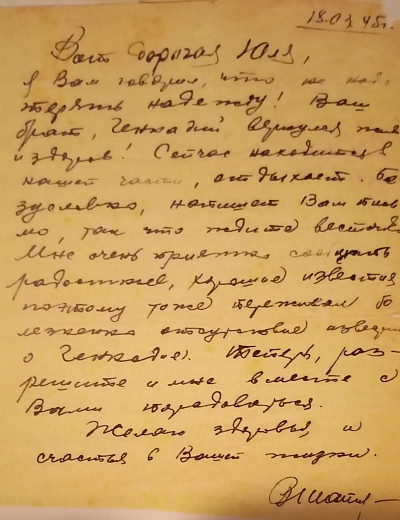 18.03 45г.
Вот дорогая Юля,
я Вам говорил, что не надо
терять надежду! Ваш
брат, Геннадий вернулся жив
и здоров! Сейчас находится в
нашей части, отдыхает. Бе
зусловно, напишет Вам пись
мо, так что ждите весточки
Мне очень приятно сообщить
радостные, хорошие известия
поэтому тоже переживал бо
лезненно отсутствие известий
о Геннадие. Теперь, раз-
решите и мне вместе с
Вами порадоваться.
Желаю здоровья, и
счастья в Вашей жизни.